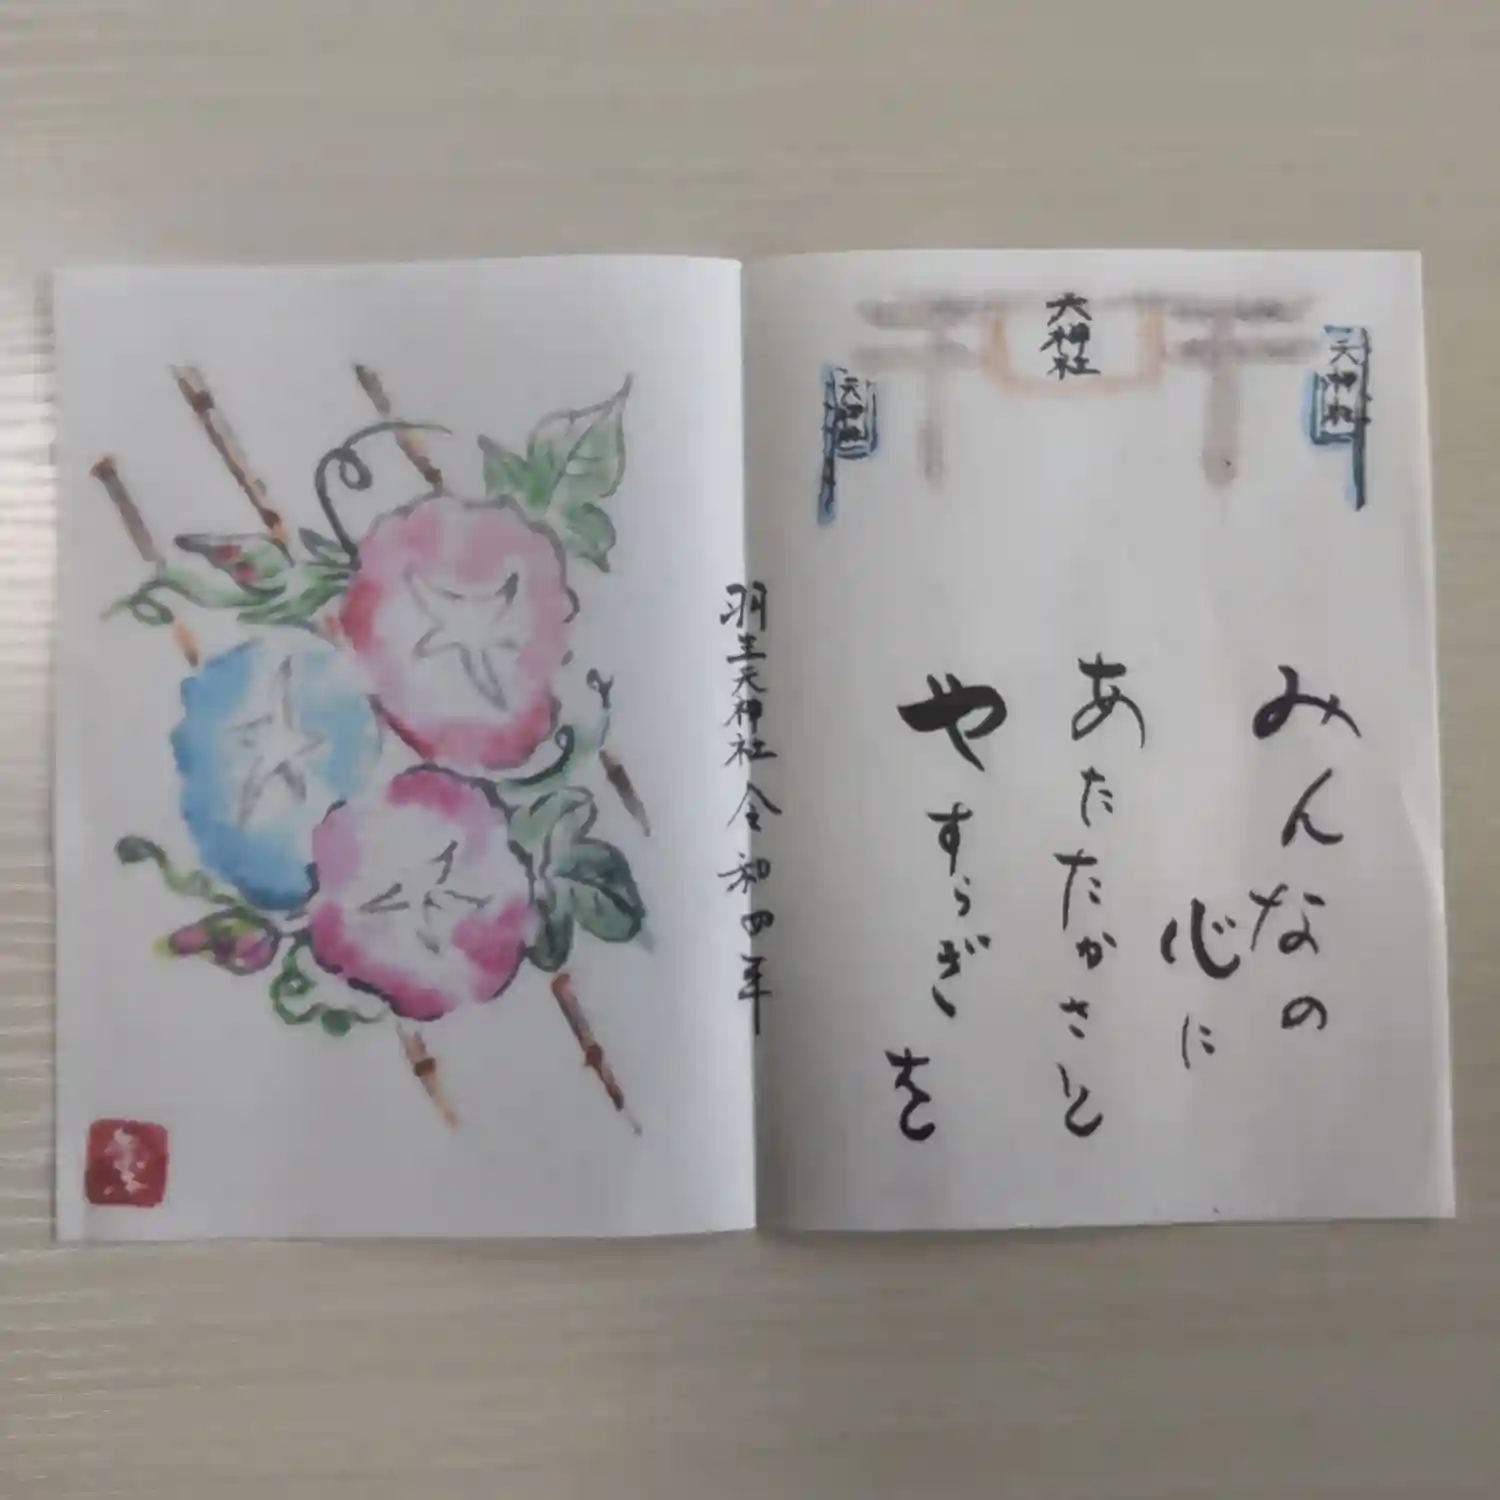 天神社
天神社
天神社
みんなの
心に
あたたかさと
やすらぎを
羽生天神社令和四年